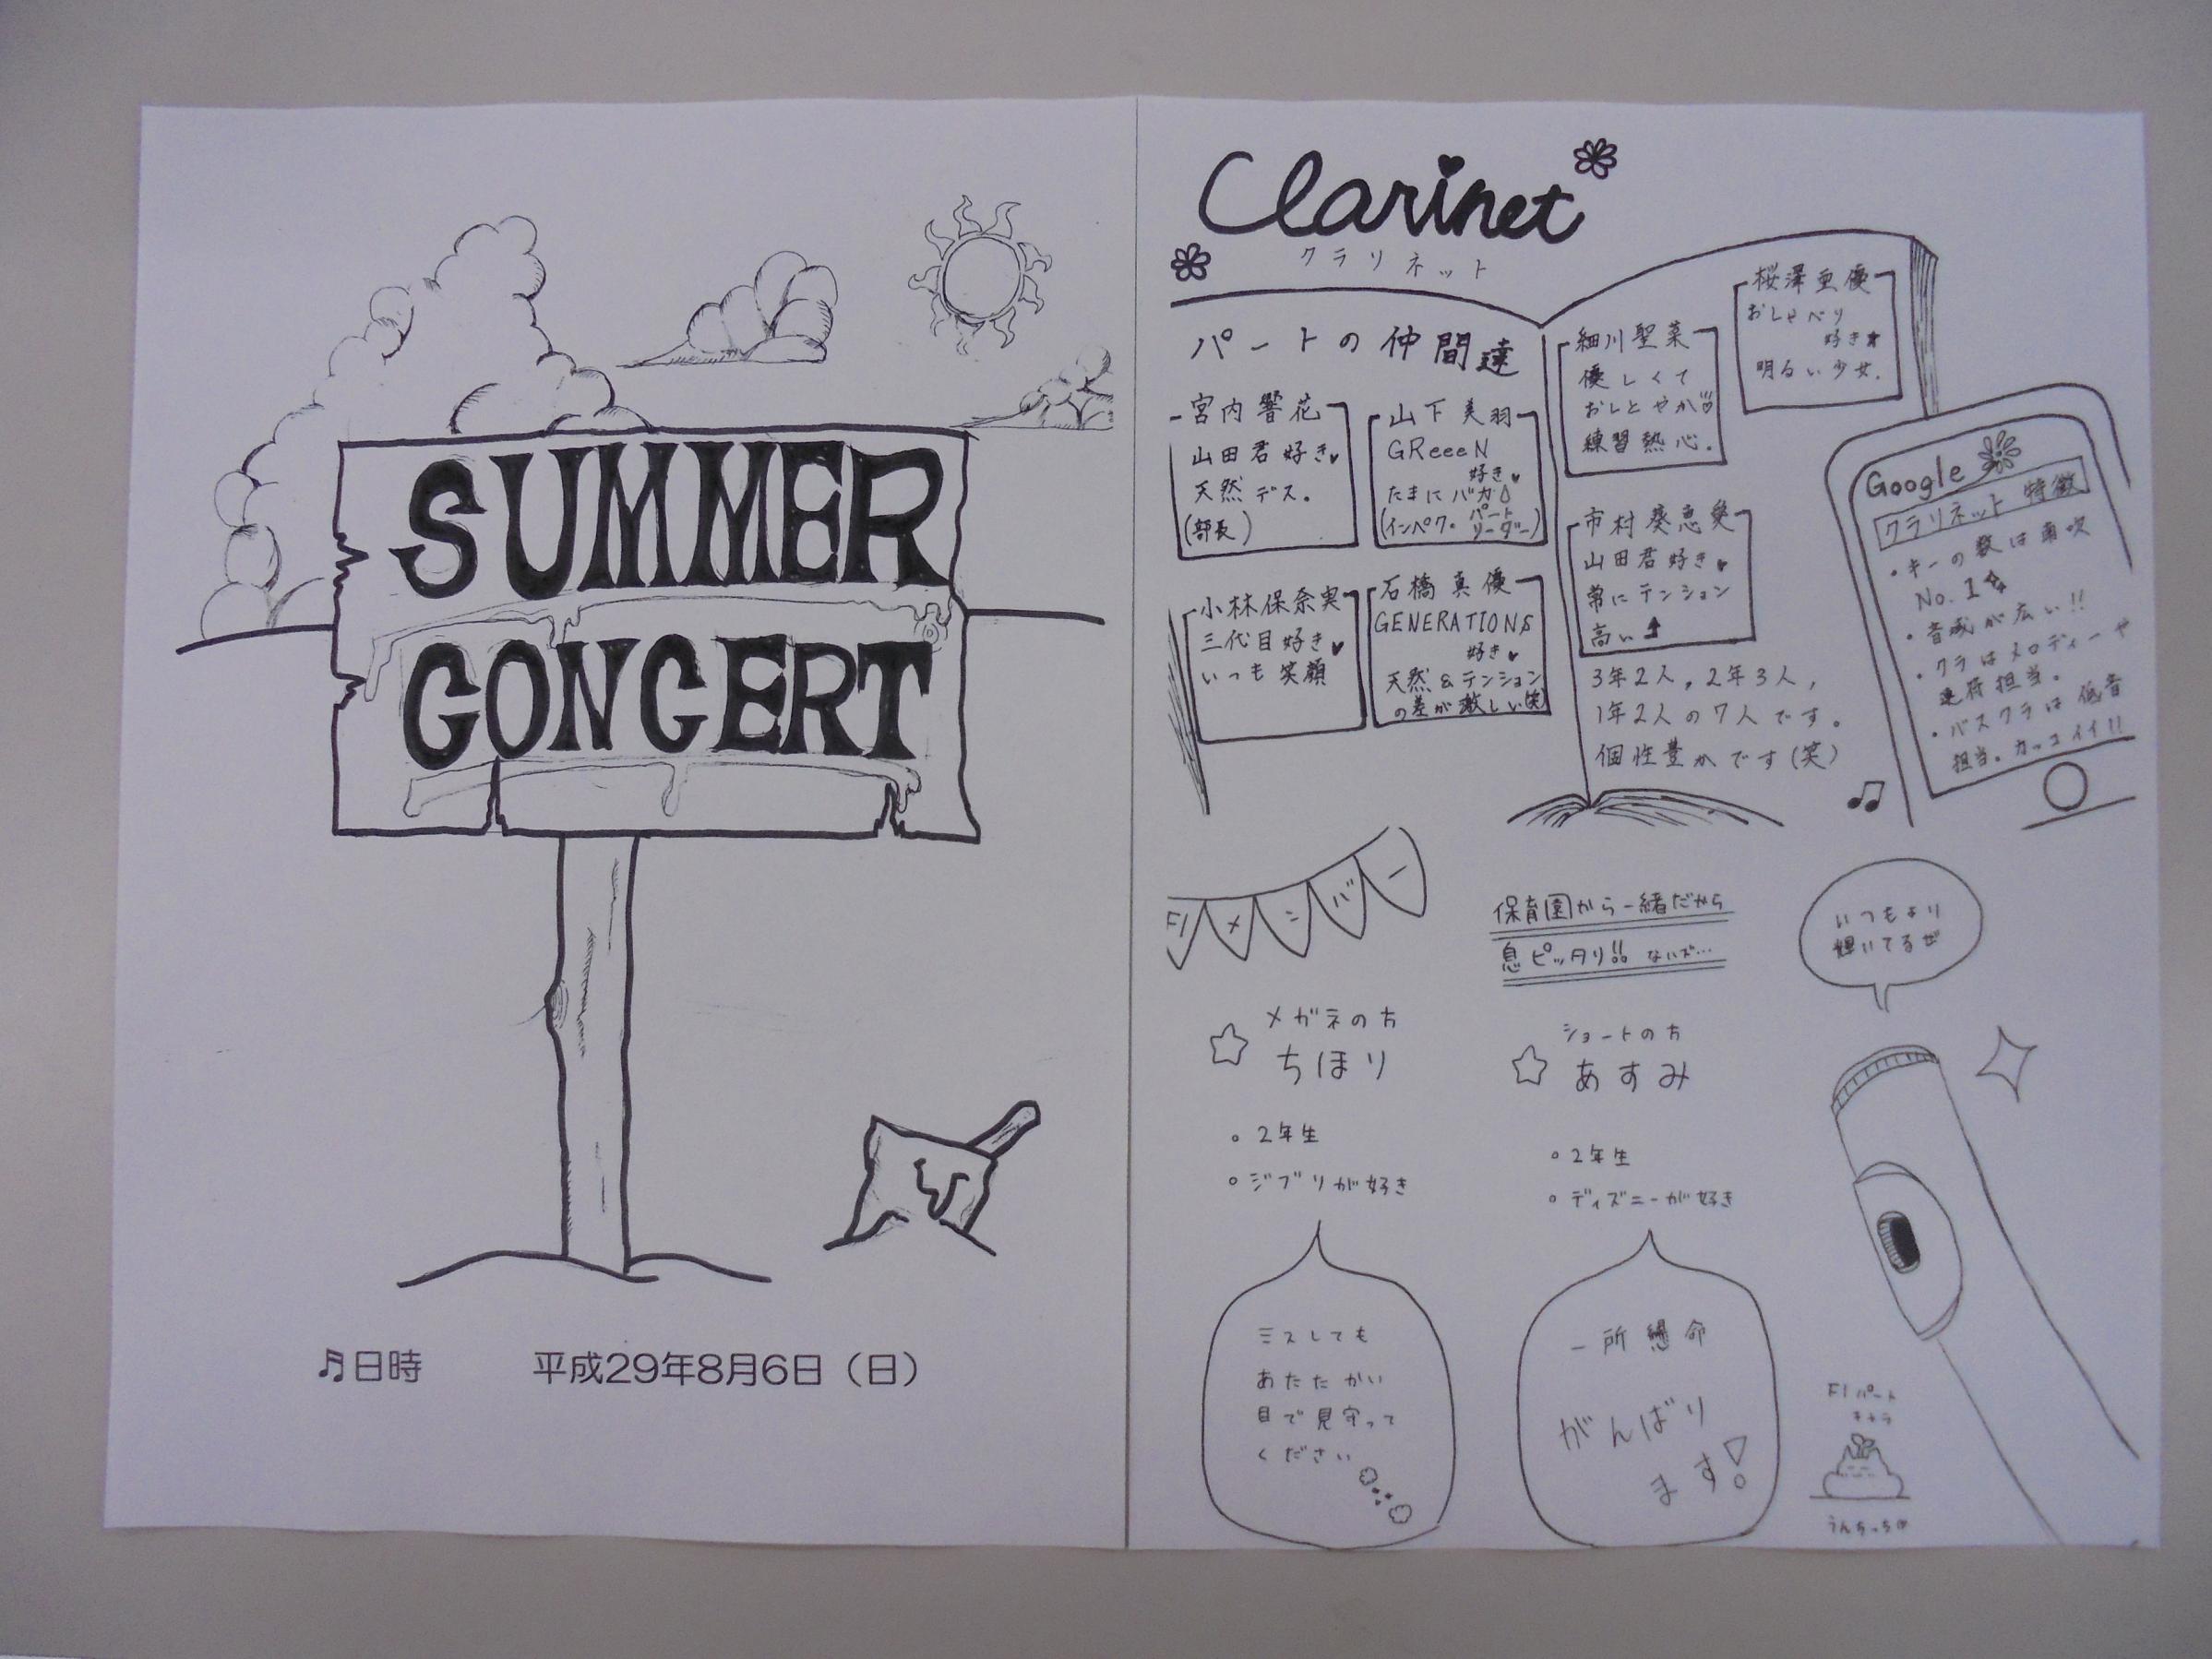 SUMMER
CONCERT
♬日時 平成29年8月6日（日）
Clarinet
クラリネット
パートの仲間達
宮内響花
山田君好き♥
天然デス。
(部長)
山下美羽
GReeeN
好き♥
たまにバカ
(インペク・パート
リーダー)
小林保奈実
三代目好き♥
いつも笑顔
石橋真優
GENERATIONS
好き♥
天然&テンション
の差が激しい(笑)
細川聖菜
優しくて
おしとやか
練習熱心。
桜澤亜優
おしゃべり
好き★
明るい少女。
市村葵恵
山田君好き♥
常にテンション
高い↑
3年2人,2年3人,
1年2人の7人です。
個性豊かです(笑)
Google
クラリネット 特徴
・キーの数は
No.1
・音域が広い!!
・クラはメロディーや
連符担当。
・バスクラは低音
担当。カッコイイ!!
Flメンバー
保育園から一緒だから
息ピッタリ!! ないズ…
いつもより
輝いてるぜ
メガネの方
☆ ちほり
。2年生
。ジブリが好き
ミスしても
あたたかい
目で見守って
ください
ショートの方
☆ あすみ
。2年生
。ディズニーが好き
一所懸命
がんばり
ます!
Flパート
キャラ